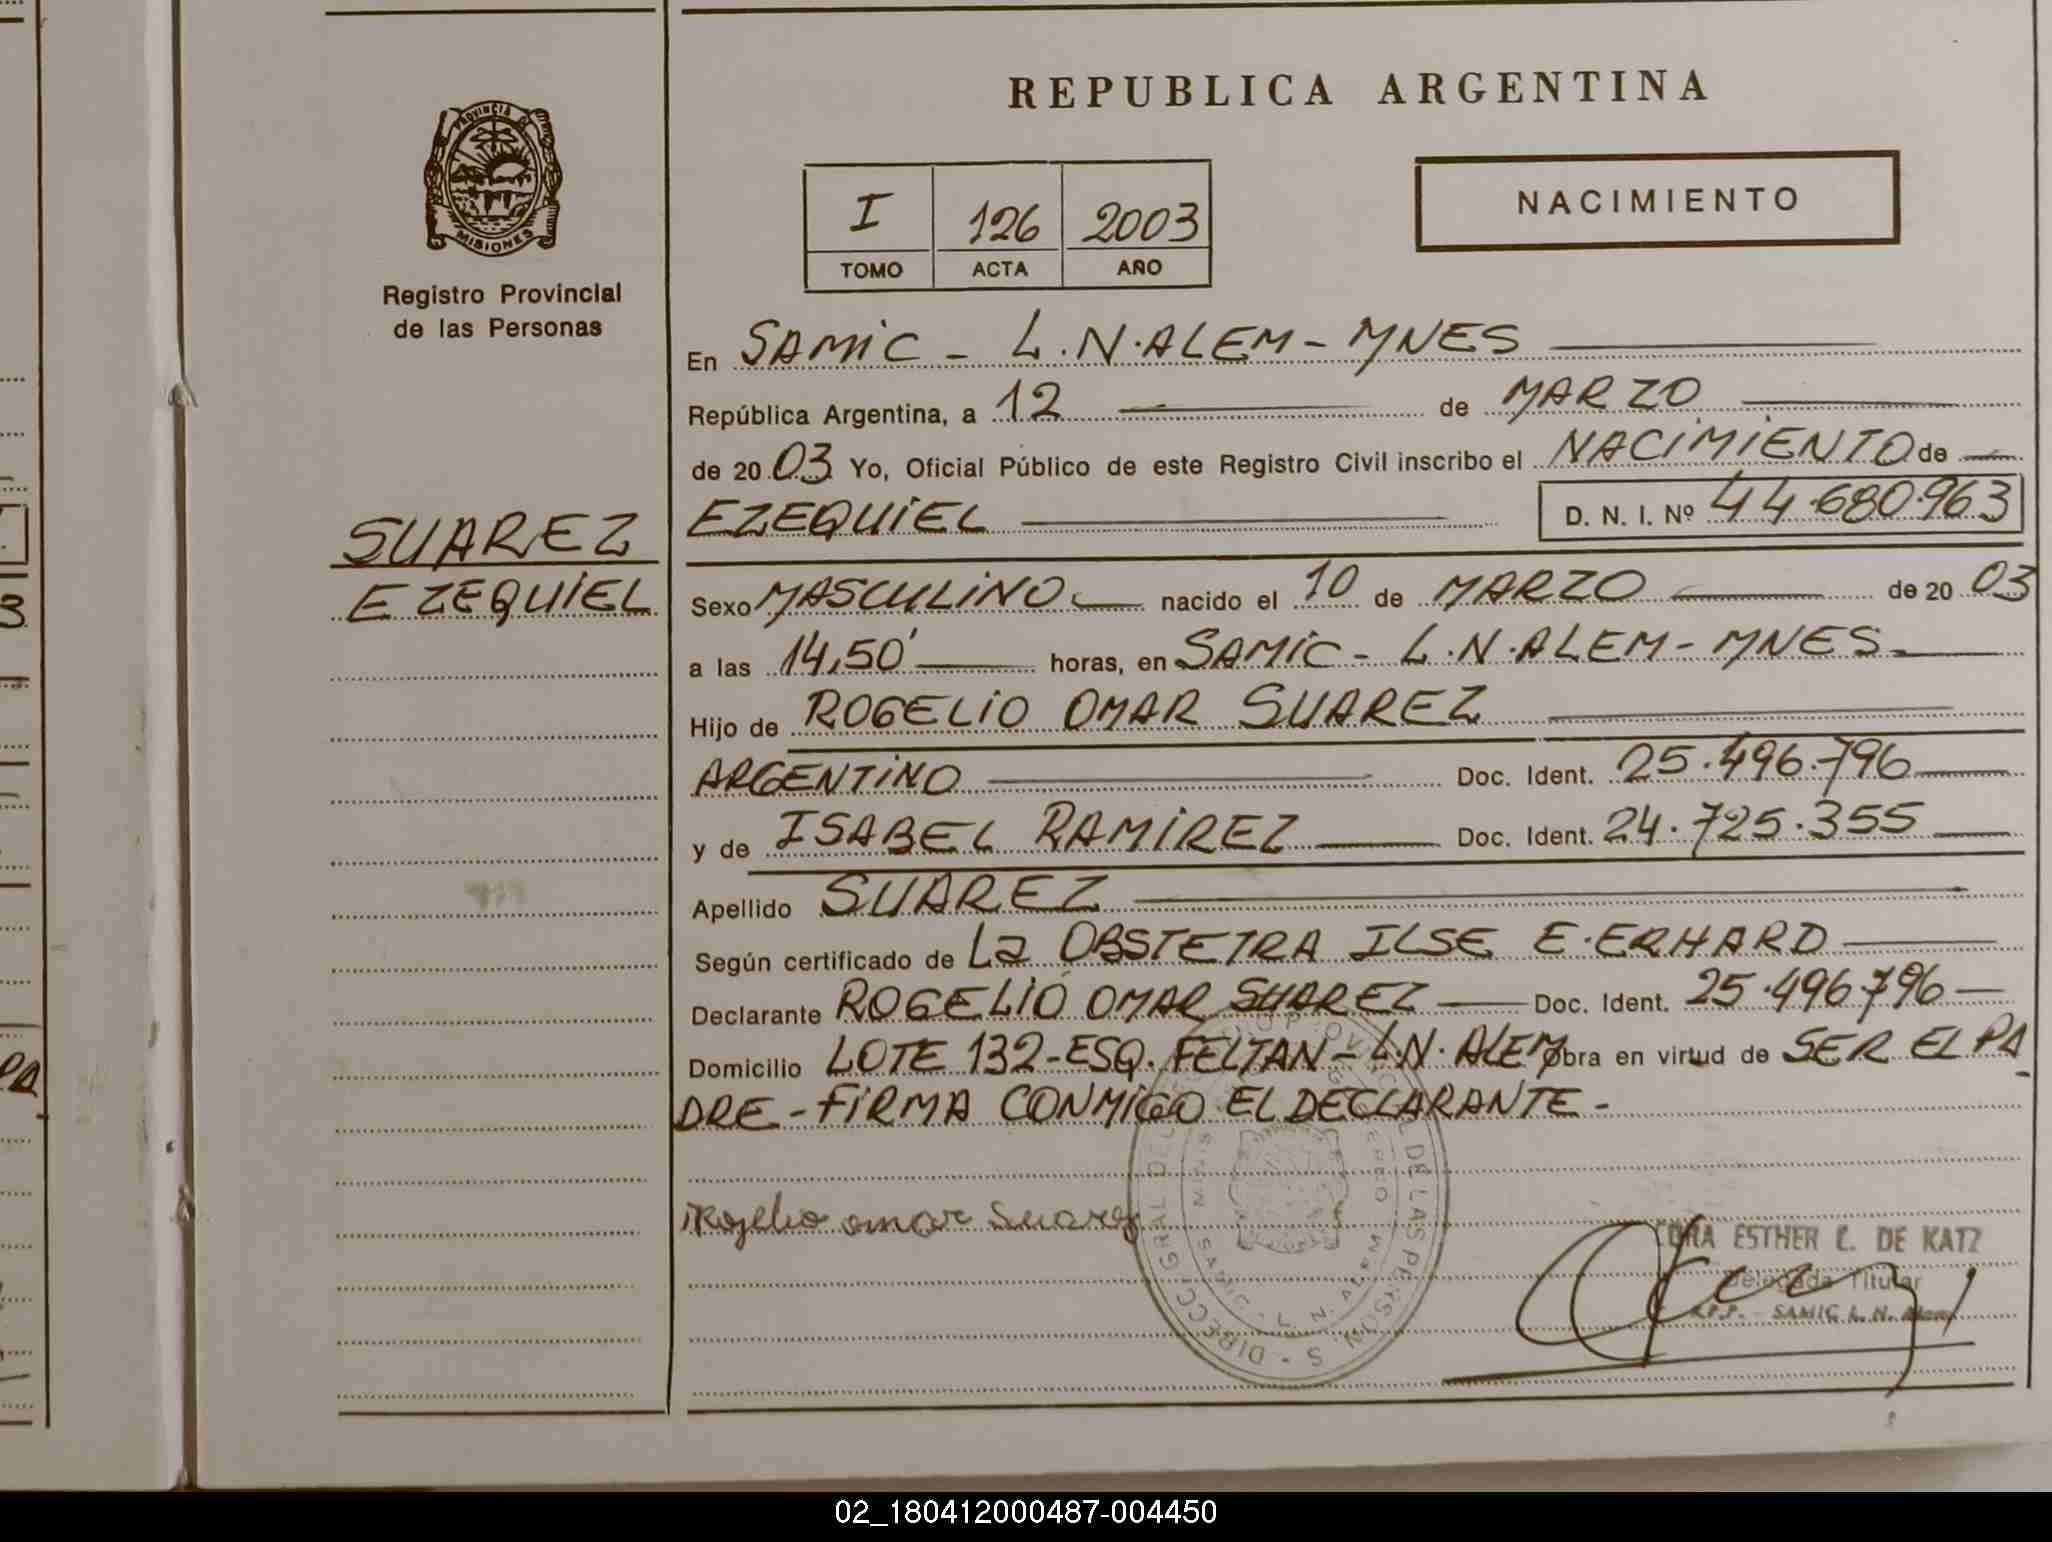 REPUBLICA ARGENTINA
PROVINCIA DE
MISIONES
Registro Provincial
de las Personas
I 126 2003
TOMO ACTA AÑO
NACIMIENTO
En SAMIC - L.N.ALEM - MNES
República Argentina, a 12 de MARZO
de 20 03 Yo, Oficial Público de este Registro Civil inscribo el NACIMIENTO de
EZEQUIEL D. N. I. Nº 44.680.963
SUAREZ
EZEQUIEL
Sexo MASCULINO nacido el 10 de MARZO de 20 03
a las 14,50' horas, en SAMIC - L.N.ALEM - MNES.
Hijo de ROGELIO OMAR SUAREZ
ARGENTINO Doc. Ident. 25.496.796
y de ISABEL RAMIREZ Doc. Ident. 24.725.355
Apellido SUAREZ
Según certificado de La OBSTETRA ILSE E. ERHARD
Declarante ROGELIO OMAR SUAREZ Doc. Ident. 25.496.796
Domicilio LOTE 132 - ESQ. FELTAN - L.N. ALEM Obra en virtud de SER EL PA
DRE - FIRMA CONMIGO EL DECLARANTE -
Rogelio omar Suarez
ESTHER C. DE KATZ
Delegada Titular
R.P.P. - SAMIC L. N. Alem
02_180412000487-004450